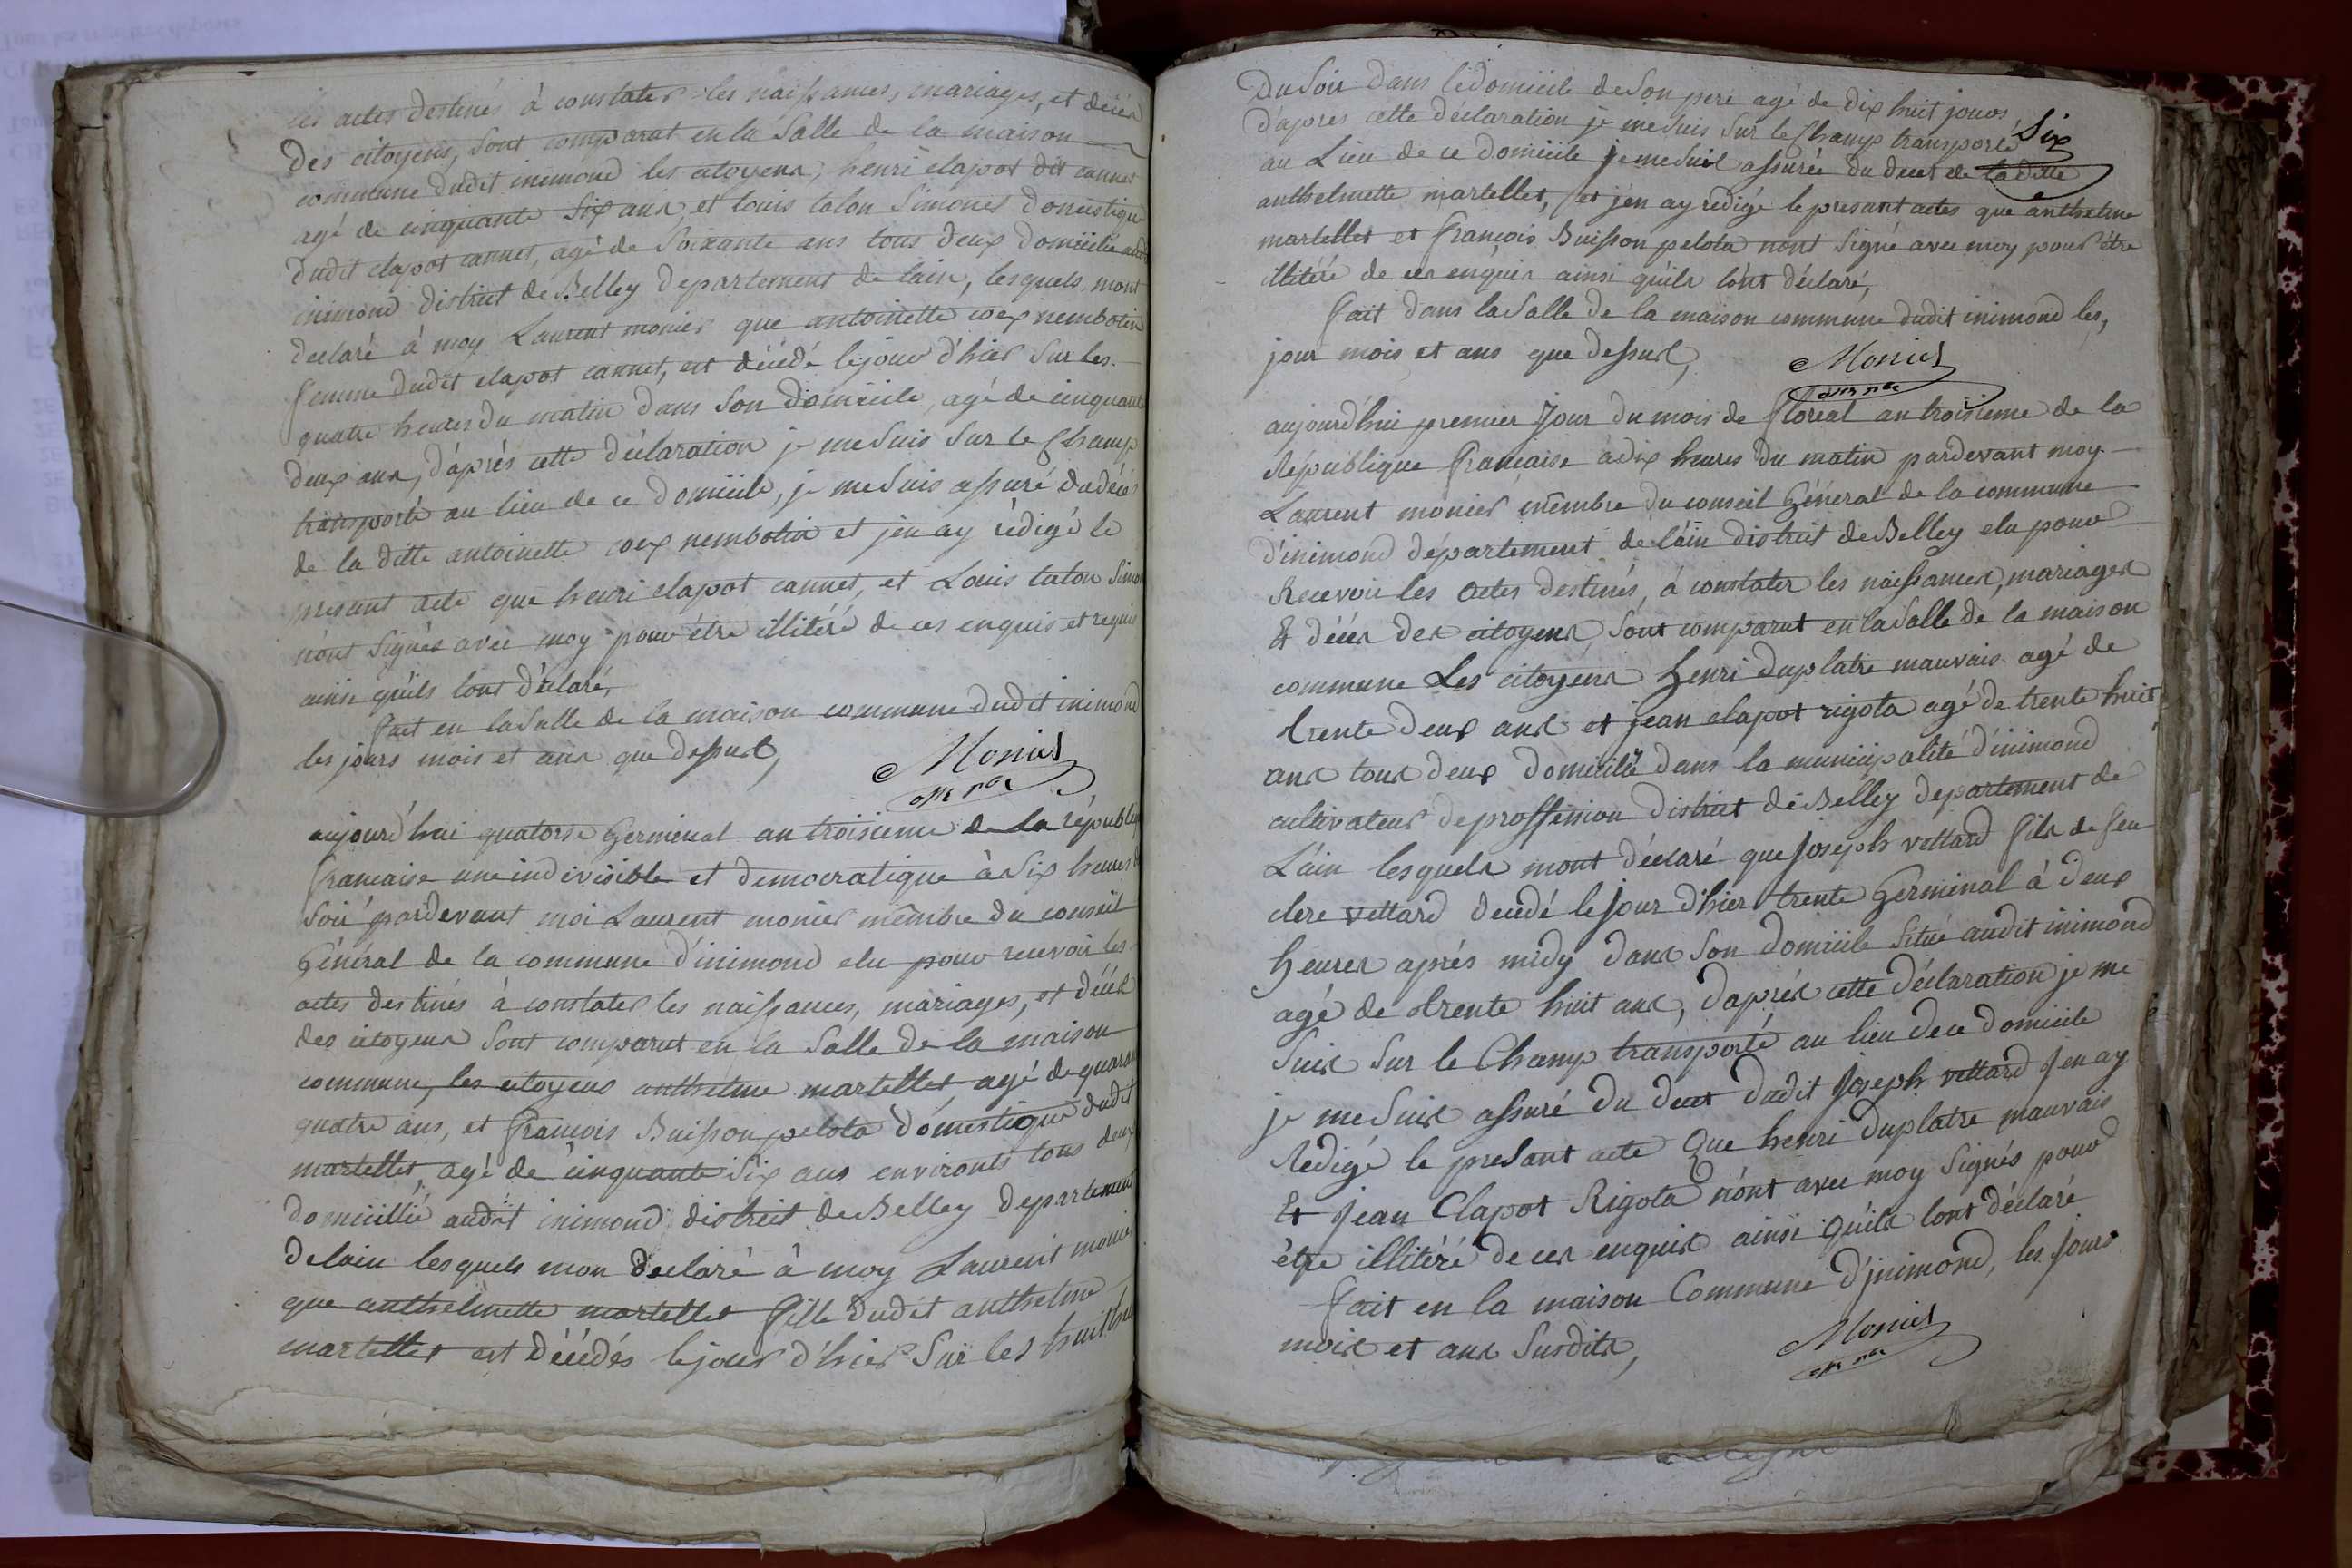 les actes destinés à constater les naissances, mariages, et décès
des citoyens, sont comparut en la salle de la maison
commune dudit inimond les citoyens, henri clapot dit cannet
agé de cinquante six ans, et louis talon Simonet domestique
dudit clapot cannet, agé de soixante ans tous deux domicilié audit
inimond district de Belley departement de lain, lesquels mont
declaré à moy Laurent monier que antoinette coex nembotin
femme dudit clapot cannet, est décédé le jour d'hier sur les
quatre heures du matin dans son domicile, agé de cinquante
deux ans, d'après cette déclaration je me suis sur le champ
transporté au lieu de ce domicile, je me suis assuré du décès
de la ditte antoinette coex nembotin et jen ay rédigé le
presant acte que henri clapot cannet, et Louis talon Simon
n'ont signés avec moy pour être illitéré de ces enquis et requis
ainsi qu'ils lont déclaré,
fait en la salle de la maison commune dudit inimond
les jours mois et ans que dessus,
Monier
aujourd'hui quatorse Germinal an troisieme de la républiq
francaise une indivisible et democratique à six heures d
soir pardevant moi Laurent monier mêmbre du conseil
Général de la commune d'inimond elu pour recevoir les
actes destinés à constater les naissances, mariages, et décès
des citoyens sont comparut en la salle de la maison
commune, les citoyens anthelme martellet, agé de quaran
quatre ans, et françois Buisson pelota domestique dudit
martellet, agé de cinquante six ans environts tous deux
domicillié audit inimond district de Belley departement
de lain lesquels mon declaré à moy Laurent monier
que anthelmette martellet fille dudit anthelme
martellet est décédés le jour d'hier sur les huit heu
Du soir dans le domicile de son pere agé de dix huit jours
Six
d'apres cette déclaration je me suis sur le champ transporté
au Lieu de ce domicile je me suis assurée du decet de la ditte
anthelmette martellet, et j'en ay redigé le presant actes que anthelme
martellet et françois Buisson pelota n'ont signé avec moy pour être
illitéré de ces enquis ainsi quils lont déclaré,
fait dans la salle de la maison commune dudit inimond les,
jour mois et ans que dessus,
Monier
aujourd'hui premier Jour du mois de floreal an troisieme de la
République francaise à dix heures du matin pardevant moy
Laurent monier mêmbre du conseil Général de la commune
d'inimond département de láin district de Belley elu pour
Recevoir les actes destinés, à constater les naissances, mariages
Et décès des citoyens, sont comparut en la salle de la maison
commune Les citoyens henri duplatre mauvais agé de
trente deux ans et jean clapot rigota agé de trente huit
ans tous deux domicilié dans la municipalité d'inimond
cultivateur de proffession district de Belley departement de
L'ain lesquels mont déclaré que joseph vettard fils de feu
clere vettard decedé le jour d'hier trente Germinal à deux
heures aprés midy dans son domicile situé audit inimond
agé de trente huit ans, daprès cette déclaration je me
suis sur le champ transporté au lieu de ce domicile
je me suis assuré du decet dudit joseph vettard jen ay
Redigé le presant acte que henri duplatre mauvais
Et jean Clapot Rigota n'ont avec moy signés pour
être illitéré de ces enquis ainsi quils lont déclaré
fait en la maison Commune d'inimond, les jours
mois et ans susdits,
Monier